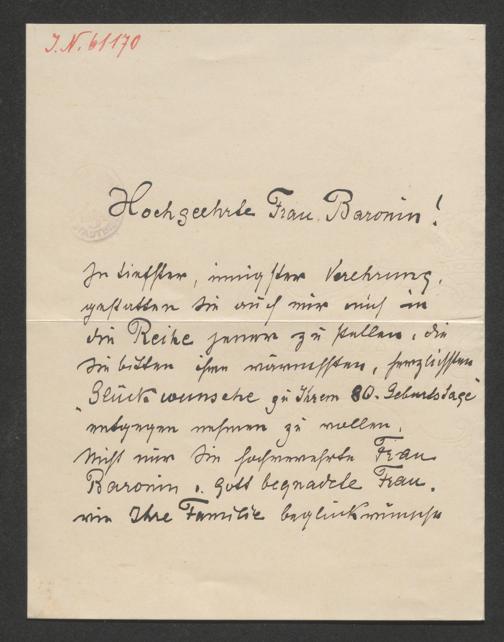 I. N. 61170
Hochgeehrte Frau Baronin!
In tiefster, innigster Verehrung,
gestatten Sie auch mir mich in
die Reihe jener zu stellen, die
Sie bitten ihre wärmsten, herzlichsten
"Glückwünsche zu Ihrem 80. Geburtstage"
entgegen nehmen zu wollen.
Nicht nur Sie hochverehrte Frau
Baronin u. Gott begnadete Frau,
wie Ihre Familie beglückwünsche